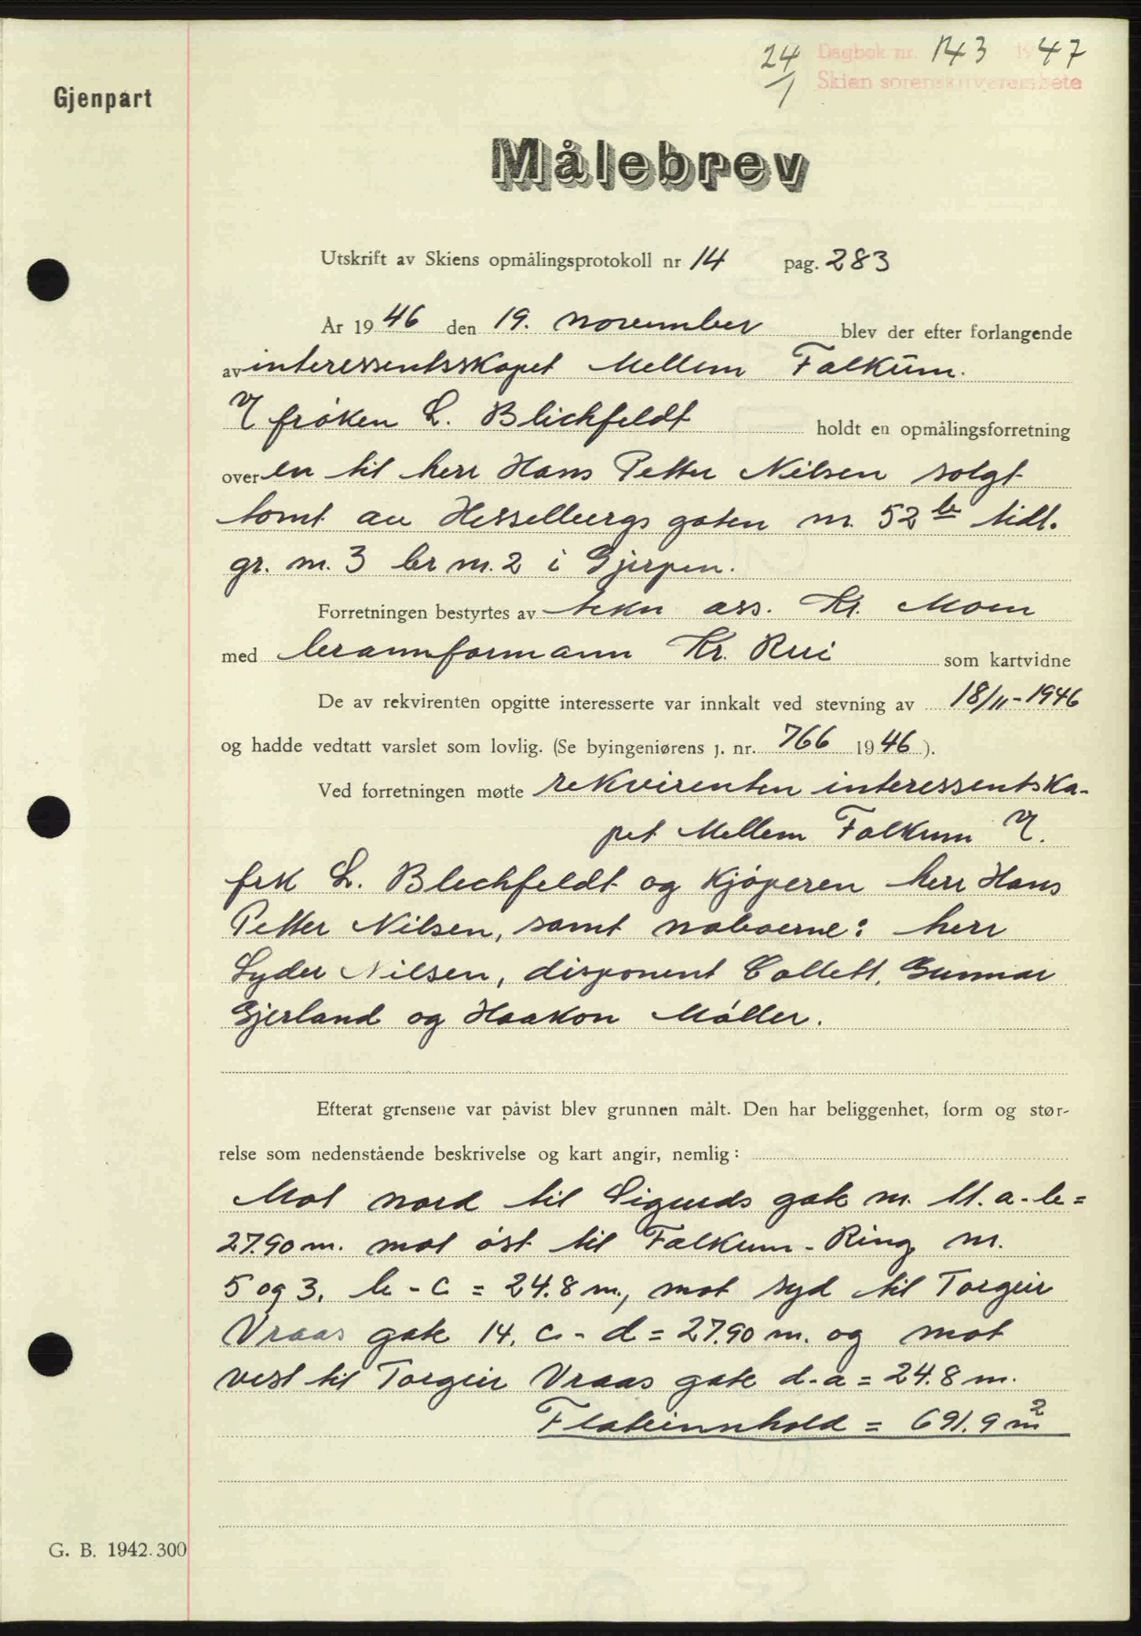 24/1 Dagbok nr. 143 1947
Skien sorenskriverembete
Gjenpart
Målebrev
Utskrift av Skiens opmålingsprotokoll nr 14 pag. 283
År 1946 den 19. november blev der efter forlangende
av interessentsskapet Mellem Falkum.
v/ frøken L. Blichfeldt holdt en opmålingsforretning
over en til herr Hans Petter Nilsen solgt
tomt av Hesselbergs gaten nr. 52 b tidl.
gr. nr. 3 br nr. 2 i Gjerpen.
Forretningen bestyrtes av tekn ass. Kr. Moen
med brannformann Kr. Rui som kartvidne
De av rekvirenten opgitte interesserte var innkalt ved stevning av 18/11-1946
og hadde vedtatt varslet som lovlig. (Se byingeniørens j. nr. 766 1946).
Ved forretningen møtte rekvirenten interessentska-
pet Mellem Falkum v/.
frk L. Blechfeldt og kjøperen herr Hans
Petter Nilsen, samt naboerne: herr
Lyder Nilsen, disponent Collett, Gunnar
Gjerland og Haakon Møller.
Efterat grensene var påvist blev grunnen målt. Den har beliggenhet, form og stør-
relse som nedenstående beskrivelse og kart angir, nemlig:
Mot nord til Sigurds gate nr. 11. a-b =
27.90 m. mot øst til Falkum-Ring nr.
5 og 3, b-c = 24.8 m, mot syd til Torgeir
Vraas gate 14, c-d = 27.90 m. og mot
vest til Torgeir Vraas gate d-a = 24.8 m.
Flateinnhold = 691.9 m²
G. B. 1942.300